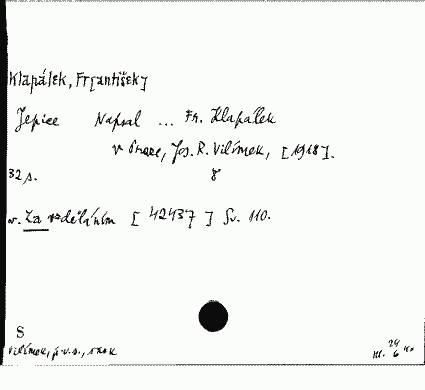 Klapálek, Fr[antišek]
Jepice Napsal ... Fr. Klapálek
v Praze, Jos. R. Vilímek, [1918].
32 s. 8
v. Za vzděláním [42437] Sv. 110.
S
Vilímek,